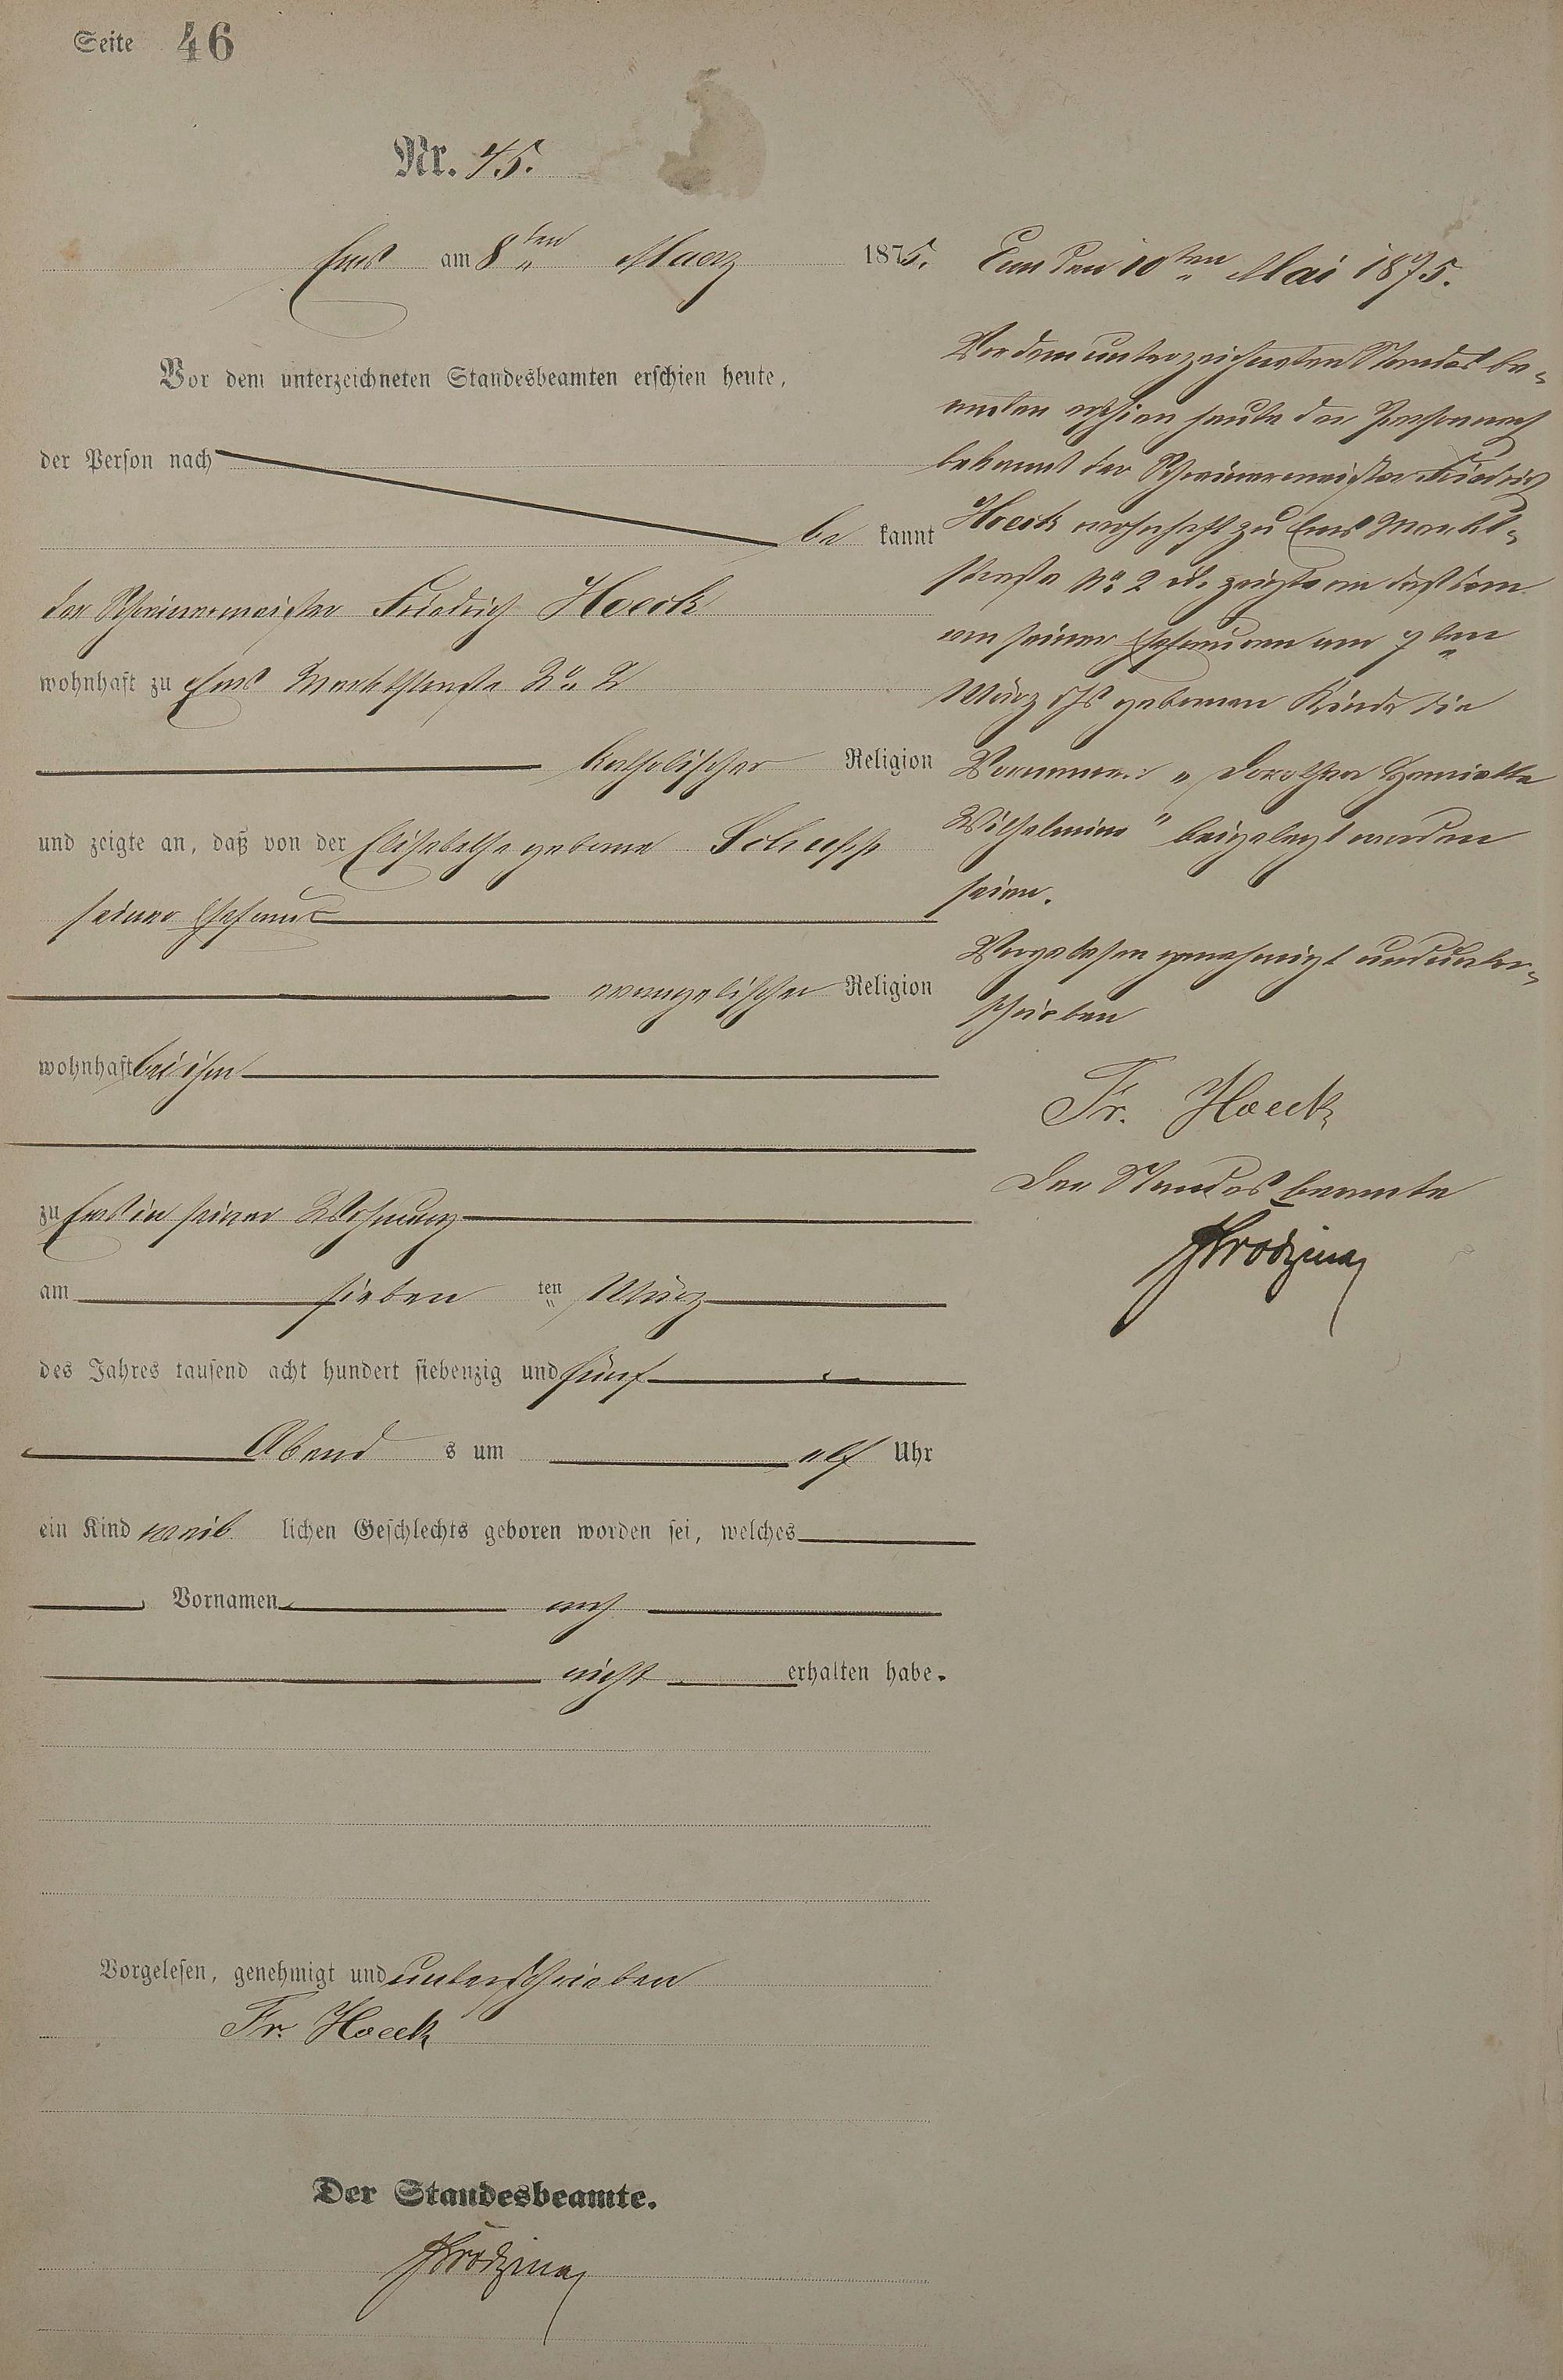 Seite 46
Nr. 45.
Ems am 8ten Maerz 1875.
Vor dem unterzeichneten Standesbeamten erschien heute,
der Person nach
be kannt
der Schreinermeister Friedrich Hoeck
wohnhaft zu Ems Marktstraße No 2
katholischer Religion
und zeigte an, daß von der Elisabethe geborne Schupp
seiner Ehefrau
evangelischer Religion
wohnhaft bei ihm
zu Ems in seiner Wohnung
am sieben ten März
des Jahres tausend acht hundert siebenzig und fünf
Abend s um elf Uhr
ein Kind weib lichen Geschlechts geboren worden sei, welches
Vornamen noch
nicht erhalten habe.
Vorgelesen, genehmigt und unterschrieben
Fr. Hoeck
Der Standesbeamte.
Ems den 10ten Mai 1875.
Vor dem unterzeichneten Standesbe-
amten erschien heute der Person nach
bekannt der Schreinermeister Friedrich
Hoeck wohnhaft zu Ems Markt-
straße No 2 zeigte an daß dem
von seiner Ehefrau am 7ten
März geborenen Kinde die
Vornamen: "Dorothea Henriette
Wilhelmine" beigelegt worden
seien.
Vorgelesen genehmigt und unter-
schrieben
Fr. Hoeck
Der Standesbeamte